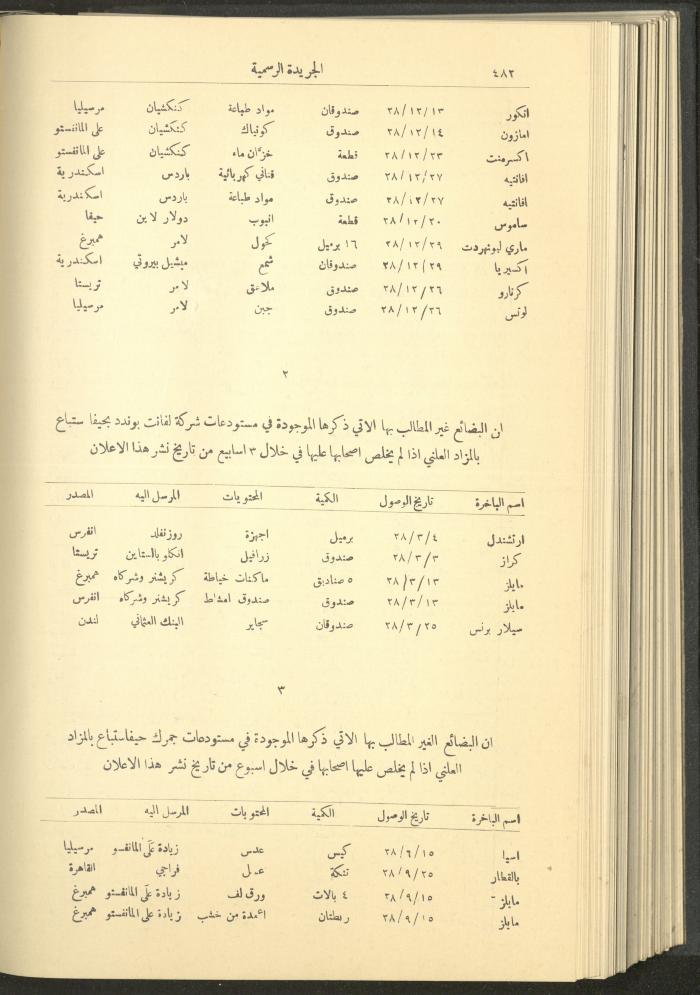 ٤٨٢ الجريدة الرسمية
انكور ٢٨/١٢/١٣ صندوقان مواد طباعة كنكشيان مرسيليا
امازون ٢٨/١٢/١٤ صندوق كونياك كنكشيان على المانفستو
اكسرمنت ٢٨/١٢/٢٣ قطعة خزان ماء كنكشيان على المانفستو
افانتيه ٢٨/١٢/٢٧ صندوق قناني كهربائية باردس اسكندرية
افانتيه ٢٨/١٢/٢٧ صندوق مواد طباعة باردس اسكندرية
ساموس ٢٨/١٢/٢٠ قطعة انبوب دولار لاين حيفا
ماري ليونهردت ٢٨/١٢/٢٩ ١٦ برميل كحول لامر همبرغ
اكسيريا ٢٨/١٢/٢٩ صندوقان شمع ميشيل بيروتي اسكندرية
كرنارو ٢٨/١٢/٢٦ صندوق ملاعق لامر تريستا
لوتس ٢٨/١٢/٢٦ صندوق جبن لامر مرسيليا
٢
ان البضائع غير المطالب بها الاتي ذكرها الموجودة في مستودعات شركة لفانت بوندد بحيفا ستباع
بالمزاد العلني اذا لم يخلص اصحابها عليها في خلال ٣ اسابيع من تاريخ نشر هذا الاعلان
اسم الباخرة تاريخ الوصول الكمية المحتويات المرسل اليه المصدر
ارتشندل ٢٨/٣/٤ برميل اجهزة روزنفلد انفرس
كراز ٢٨/٣/٣ صندوق زرافيل انكلو بالستاين تريستا
مايلز ٢٨/٣/١٣ ٥ صناديق ماكنات خياطة كريشنر وشركاه همبرغ
مايلز ٢٨/٣/١٣ صندوق صندوق امشاط كريشنر وشركاه انفرس
سيلار برنس ٢٨/٣/٢٥ صندوقان سجاير البنك العثماني لندن
٣
ان البضائع الغير المطالب بها الاتي ذكرها الموجودة في مستودعات جمرك حيفا ستباع بالمزاد
العلني اذا لم يخلص عليها اصحابها في خلال اسبوع من تاريخ نشر هذا الاعلان
اسم الباخرة تاريخ الوصول الكمية المحتويات المرسل اليه المصدر
اسيا ٢٨/٦/١٥ كيس عدس زيادة على المانفسو مرسيليا
بالقطار ٢٨/٩/٢٥ تنكة عسل فراجي القاهرة
مايلز ٢٨/٩/١٥ ٤ بالات ورق لف زيادة على المانفستو همبرغ
مايلز ٢٨/٩/١٥ ربطتان اعمدة من خشب زيادة على المانفستو همبرغ